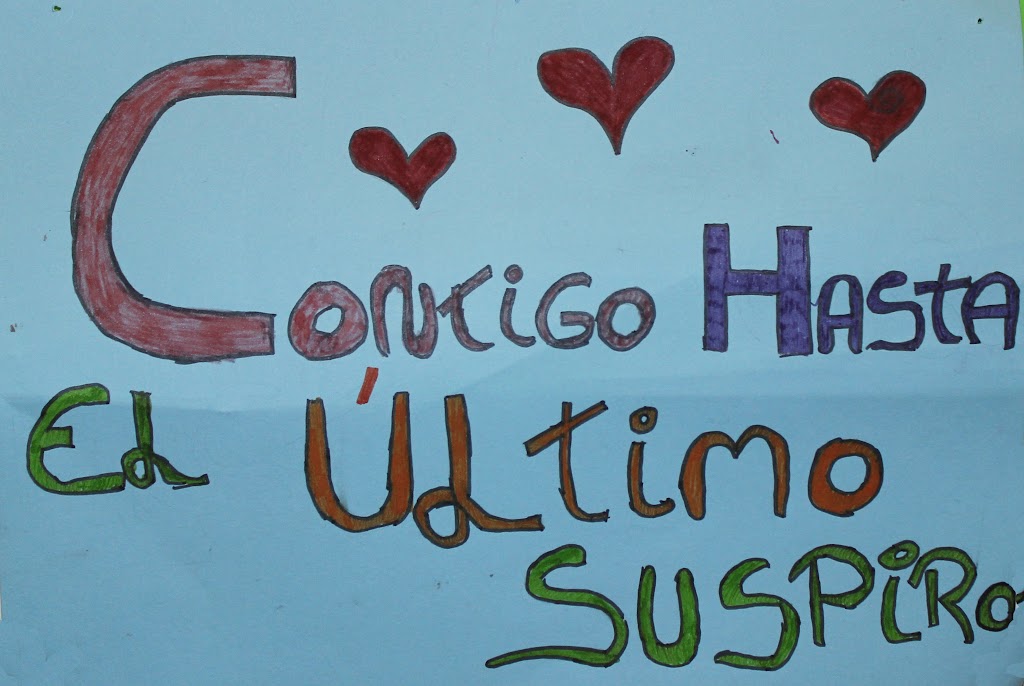 Contigo Hasta
El Último
Suspiro